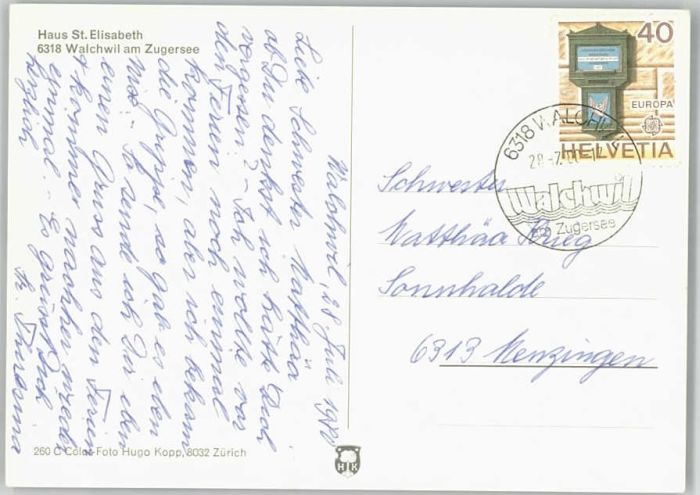 Haus St. Elisabeth
6318 Walchwil am Zugersee
Walchwil, 28. Juli 1980
Liebe Schwester Matthäa
ob Du denkst ich hätte Dich
vergessen? - Ich wollte vor
den Ferien noch einmal
kommen, aber ich bekam
die Grippe, so gab es den
Mos. So sende ich Dir eben
einen Gruss aus den Ferien
& komme nachher wieder
einmal. Es grüsst Dich
herzlich
Sr.
40
EUROPA
HELVETIA
6318 WALCHWIL
28.-7.
Walchwil
am Zugersee
Schwester
Matthäa Krieg
Sonnhalde
6313 Menzingen
260 C Color-Foto Hugo Kopp, 8032 Zürich
H K